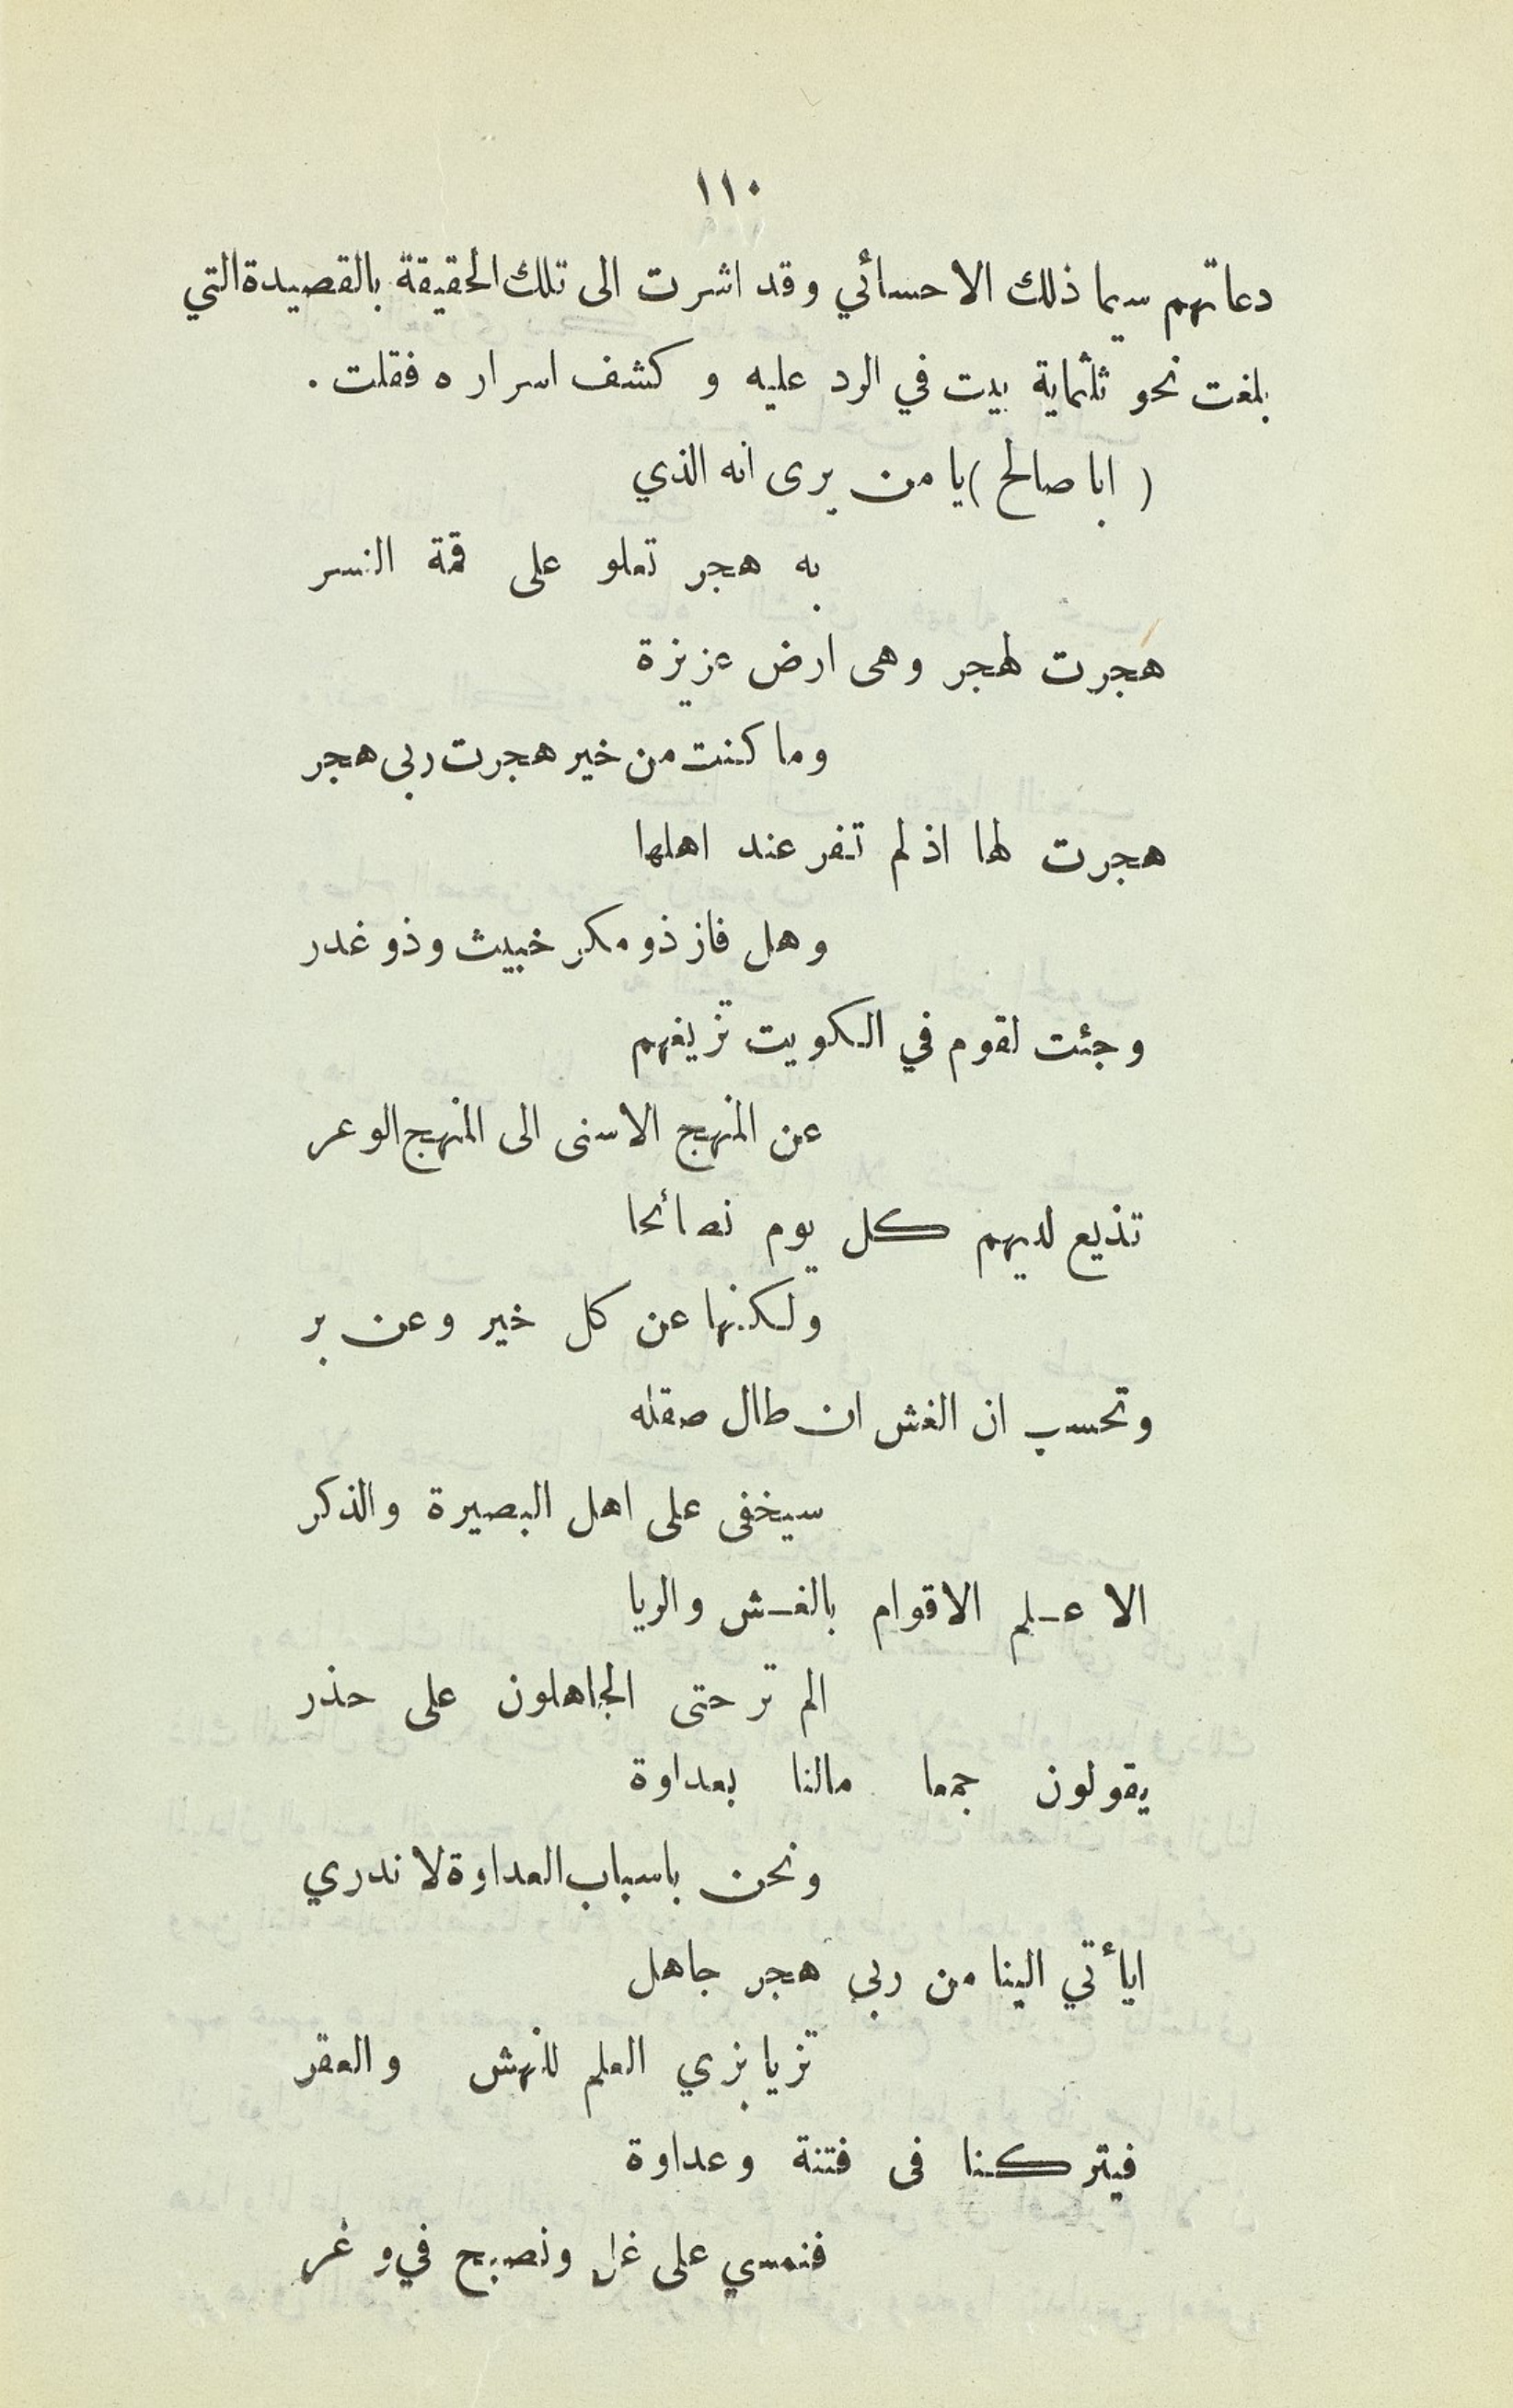 ١١٠
دعاتهم سيما ذلك الاحسائي وقد اشرت الى تلك الحقيقة بالقصيدة التي
بلغت نحو ثلثماية بيت في الرد عليه و كشف اسراره فقلت .
( ابا صالح ) يا من يرى انه الذي
به هجر تعلو على قمة النسر
هجرت لهجر وهى ارض عزيزة
وما كنت من خير هجرت ربى هجر
هجرت لها اذ لم تفر عند اهلها
وهل فاز ذو مكر خبيث وذو غدر
وجئت لقوم في الكويت تزيغهم
عن المنهج الاسنى الى المنهج الوعر
تذيع لديهم كل يوم نصائحا
ولكنها عن كل خير وعن بر
وتحسب ان الغش ان طال صقله
سيخفى على اهل البصيرة والذكر
الا علم الاقوام بالغش والريا
الم تر حتى الجاهلون على حذر
يقولون جمعا مالنا بعداوة
ونحن باسباب العداوة لا ندري
ايأتي الينا من ربى هجر جاهل
تزيا بزي العلم للنهش والعقر
فيتركنا فى فتنة وعداوة
فنمسي على غل ونصبح في وغر